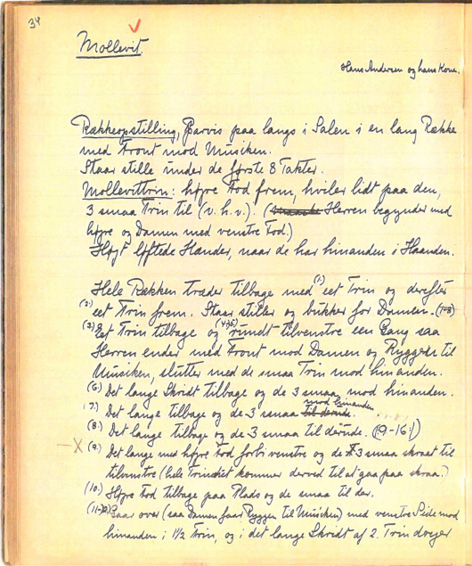 34
Mollevit
Hans Andersen og hans Kone.
Rækkeopstilling, Parvis paa langs i Salen i en lang Række
med Front mod Musiken.
Staar stille under de første 8 Takter.
Mollevittrin: højre Fod frem, hviler lidt paa den,
3 smaa Trin til (v.h.v.). (Herren begynder med
højre og Damen med venstre Fod.)
Højt løftede Hænder, naar de har hinanden i Haanden.
Hele Rækken træder tilbage med (1) eet Trin og derefter
(2) eet Trin frem. Staar stille og bukker for Damen. (1-8)
(3) Eet Trin tilbage og rundt tilvenstre een Gang saa
Herren ender med Front mod Damen og Ryggen til
Musiken, slutter med de smaa Trin mod hinanden.
(6.) Det lange Skridt tilbage og de 3 smaa mod hinanden.
(7.) Det lange tilbage og de 3 smaa mod hinanden
(8.) Det lange tilbage og de 3 smaa til derude. (9-16)
X (9.) Det lange med højre Fod forbi venstre og de 3 smaa skraat til
tilvenstre (hele Trinet kommer derved til at gaa paa skraa.)
(10.) Højre Fod tilbage paa Plads og de smaa til der.
Gaar over (saa Damen faar Ryggen til Musiken) med venstre Side mod
hinanden i 1½ Trin, og i det lange Skridt af 2. Trin drejer